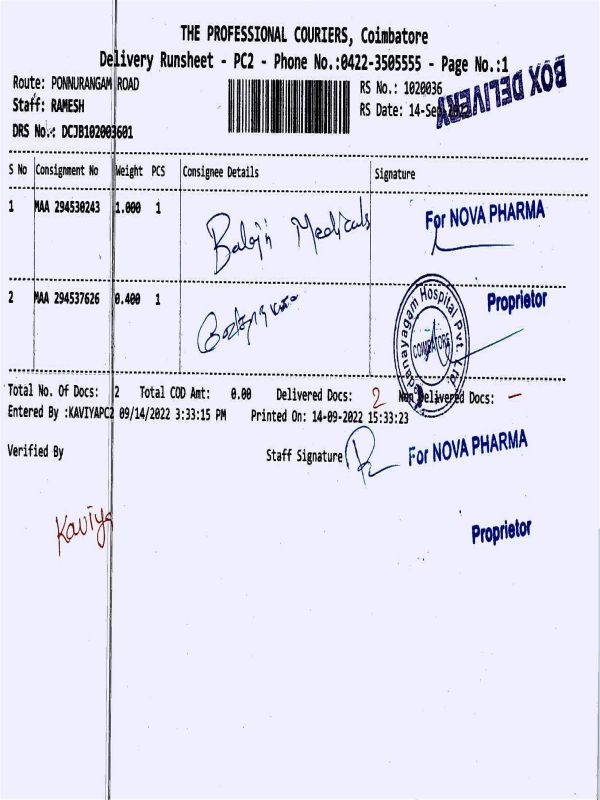 THE PROFESSIONAL COURIERS, Coimbatore
Delivery Runsheet - PC2 - Phone No.:0422-3505555 - Page No.:1
Route: PONNURANGAM ROAD
RS No.: 1020036
BOX DELIVERY
Staff: RAMESH
RS Date: 14-Sep-2022
DRS No.: DCJB102003601
S No Consignment No Weight PCS Consignee Details Signature
1 MAA 294530243 1.000 1 Balaji Medicals For NOVA PHARMA
2 MAA 294537626 0.400 1 Proprietor
Hospital Pvt. Ltd
COIMBATORE
Total No. Of Docs: 2 Total COD Amt: 0.00 Delivered Docs: 2 Non Delivered Docs: -
Entered By :KAVIYAPC2 09/14/2022 3:33:15 PM Printed On: 14-09-2022 15:33:23
Verified By Staff Signature For NOVA PHARMA
Kaviya
Proprietor